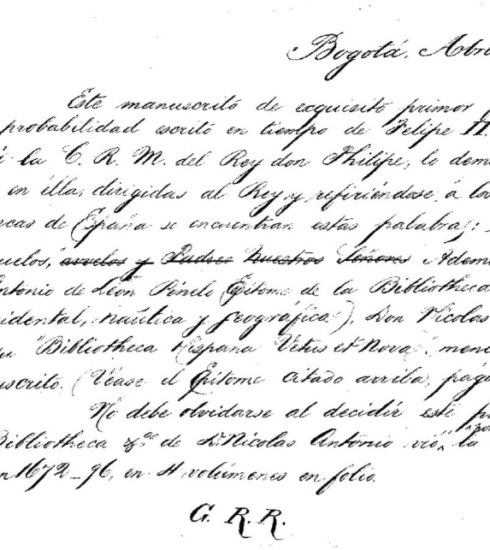 Bogotá, Abri
Este manuscrito de exquisito primor
probabilidad escrito en tiempo de Felipe II
la C. R. M. del Rey don Philipe; lo dem
en élla, dirigidas al Rey y refiriéndose á lo
cas de España se encuentran estas palabras:
uelos, avuelos y Padres Nuestros Señores Adem
ntonio de León Pinelo (Epitome de la Bibliotheca
idental, náutica y geográfica). Don Nicolas
"Bibliotheca Hispana Vetus et Nova", menc
uscrito. (Véase el Epitome citado arriba, pág
No debe olvidarse al decidir este p
Bibliotheca &ª de D. Nicolas Antonio vió la
n 1672-96, en 4 volúmenes en folio.
G. R. R.